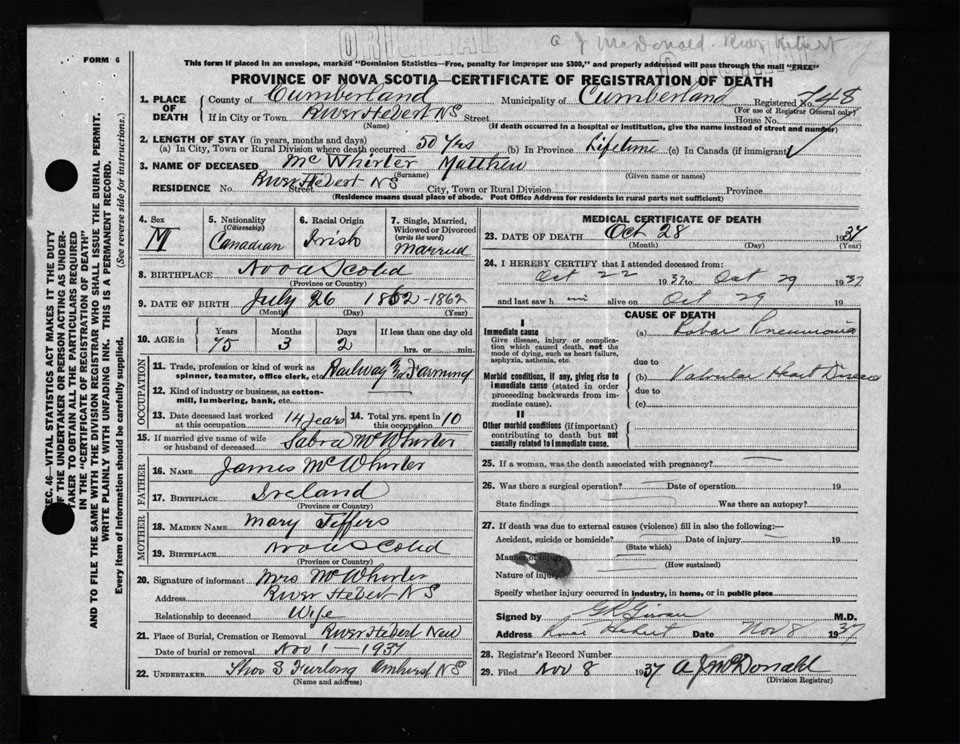 ORIGINAL
A J McDonald River Hebert
FORM 6
This form if placed in an envelope, marked "Dominion Statistics—Free, penalty for improper use $300," and properly addressed will pass through the mail "FREE"
PROVINCE OF NOVA SCOTIA—CERTIFICATE OF REGISTRATION OF DEATH
1. PLACE OF DEATH County of Cumberland Municipality of Cumberland Registered No. 748
(For use of Registrar General only)
If in City or Town River Hebert NS Street House No.
(Name) (If death occurred in a hospital or institution, give the name instead of street and number)
2. LENGTH OF STAY (in years, months and days)
(a) In City, Town or Rural Division where death occurred 50 yrs (b) In Province Lifetime (c) In Canada (if immigrant)
3. NAME OF DECEASED McWhirter Matthew
(Surname) (Given name or names)
RESIDENCE No. River Hebert NS Street City, Town or Rural Division Province
(Residence means usual place of abode. Post Office Address for residents in rural parts not sufficient)
4. Sex M
5. Nationality (Citizenship) Canadian
6. Racial Origin Irish
7. Single, Married, Widowed or Divorced (write the word) Married
8. BIRTHPLACE Nova Scotia
(Province or Country)
9. DATE OF BIRTH July 26 1862 - 1862
(Month) (Day) (Year)
10. AGE in Years 75 Months 3 Days 2 If less than one day old hrs. or min.
OCCUPATION
11. Trade, profession or kind of work as spinner, teamster, office clerk, etc. Railway Farming
12. Kind of industry or business, as cotton-mill, lumbering, bank, etc.
13. Date deceased last worked at this occupation 14 years
14. Total yrs. spent in this occupation 10
15. If married give name of wife or husband of deceased Sabra McWhirter
FATHER
16. NAME James McWhirter
17. BIRTHPLACE Ireland
(Province or Country)
MOTHER
18. MAIDEN NAME Mary Jeffers
19. BIRTHPLACE Nova Scotia
(Province or Country)
20. Signature of informant Mrs McWhirter
Address River Hebert NS
Relationship to deceased Wife
21. Place of Burial, Cremation or Removal River Hebert New
Date of burial or removal Nov 1 - 1937
22. UNDERTAKER Thos S Furlong Amherst NS
(Name and address)
MEDICAL CERTIFICATE OF DEATH
23. DATE OF DEATH Oct 28 1937
(Month) (Day) (Year)
24. I HEREBY CERTIFY that I attended deceased from:
Oct 22 1937 to Oct 29 1937
and last saw h im alive on Oct 29 19
CAUSE OF DEATH
I
Immediate cause
Give disease, injury or complication which caused death, not the mode of dying, such as heart failure, asphyxia, asthenia, etc.
(a) Lobar Pneumonia
due to
Morbid conditions, if any, giving rise to immediate cause (stated in order proceeding backwards from immediate cause).
(b) Valvular Heart Disease
due to
(c)
II
Other morbid conditions (if important) contributing to death but not causally related to immediate cause.
25. If a woman, was the death associated with pregnancy?
26. Was there a surgical operation? Date of operation 19
State findings Was there an autopsy?
27. If death was due to external causes (violence) fill in also the following:—
Accident, suicide or homicide? Date of injury 19
(State which)
Manner of injury
(How sustained)
Nature of injury
Specify whether injury occurred in industry, in home, or in public place
Signed by M.D.
Address River Hebert Date Nov 8 1937
28. Registrar's Record Number
29. Filed Nov 8 1937 A J McDonald
(Division Registrar)
SEC. 46—VITAL STATISTICS ACT MAKES IT THE DUTY
OF THE UNDERTAKER OR PERSON ACTING AS UNDER-
TAKER TO OBTAIN ALL THE PARTICULARS REQUIRED
IN THE "CERTIFICATE OF REGISTRATION OF DEATH"
AND TO FILE THE SAME WITH THE DIVISION REGISTRAR WHO SHALL ISSUE THE BURIAL PERMIT.
WRITE PLAINLY WITH UNFADING INK. THIS IS A PERMANENT RECORD.
Every item of Information should be carefully supplied. (See reverse side for instructions.)